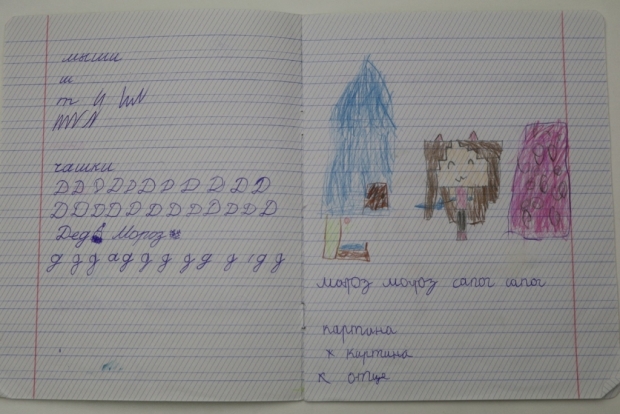 мыши
ш
т
чашки
Д Д Д Д Д Д Д Д Д Д Д
Д Д Д Д Д Д Д Д Д Д Д Д
Дед Мороз
д д д д д д д д д д д
мороз мороз сапог сапог
картина
к картина
к отце